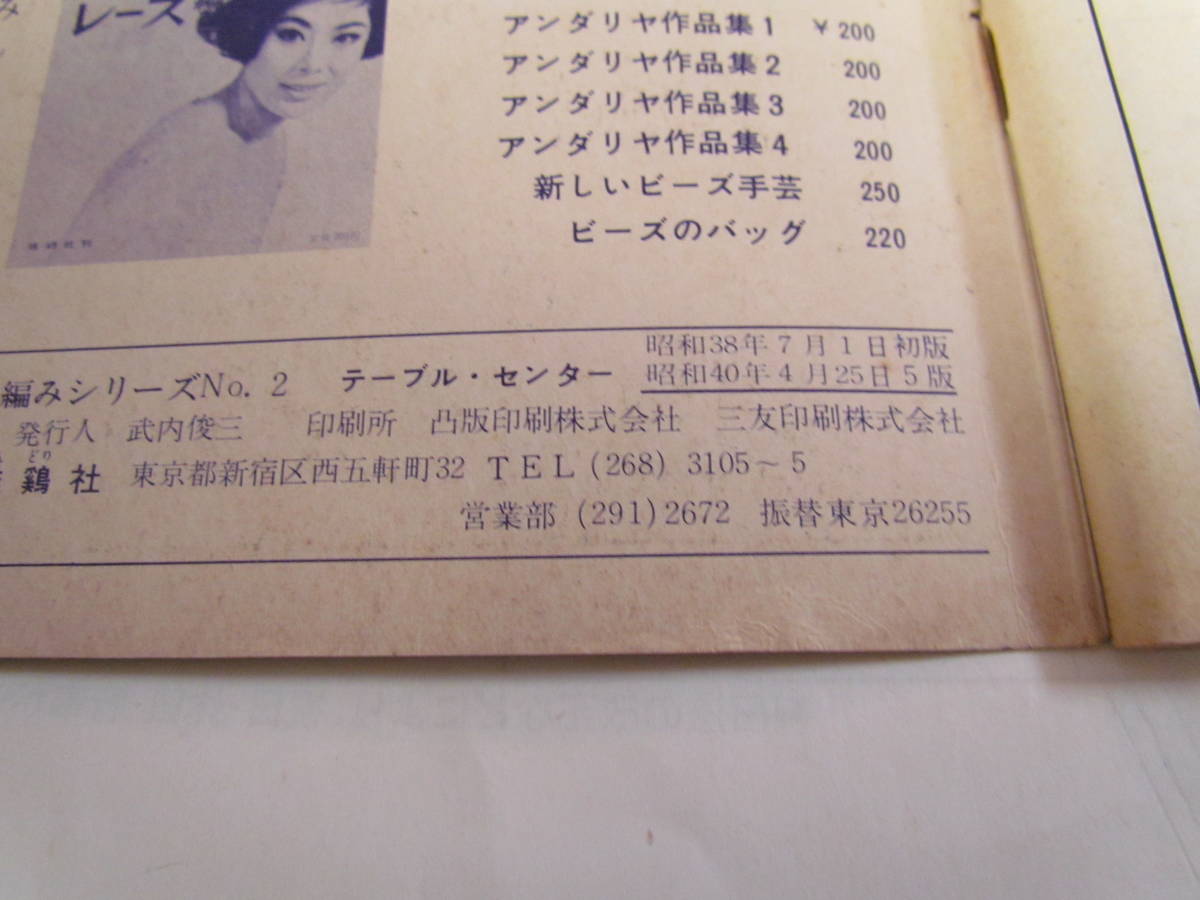 み
レース
アンダリヤ作品集1 ￥200
アンダリヤ作品集2 200
アンダリヤ作品集3 200
アンダリヤ作品集4 200
新しいビーズ手芸 250
ビーズのバッグ 220
昭和38年7月1日初版
編みシリーズNo. 2 テーブル・センター 昭和40年4月25日5版
発行人 武内俊三 印刷所 凸版印刷株式会社 三友印刷株式会社
どり
鶏社 東京都新宿区西五軒町32 TEL (268) 3105～5
営業部 (291) 2672 振替東京26255